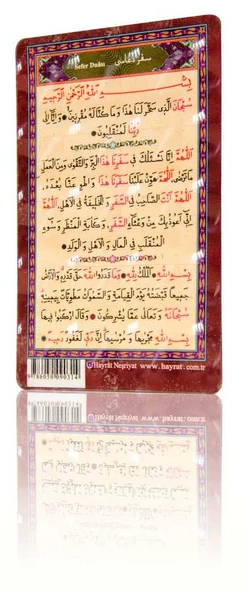 Sefer Duâsı سفر دعاسی
بِسْمِ اللّٰهِ الرَّحْمٰنِ الرَّحِيمِ
سُبْحَانَ الَّذِى سَخَّرَ لَنَا هٰذَا وَمَا كُنَّا لَهُ مُقْرِنِينَ ۝ وَاِنَّا اِلٰى
رَبِّنَا لَمُنْقَلِبُونَ
اَللّٰهُمَّ اِنَّا نَسْئَلُكَ فِى سَفَرِنَا هٰذَا الْبِرَّ وَالتَّقْوٰى وَمِنَ الْعَمَلِ
مَا تَرْضٰى اَللّٰهُمَّ هَوِّنْ عَلَيْنَا سَفَرَنَا هٰذَا وَاطْوِ عَنَّا بُعْدَهُ
اَللّٰهُمَّ اَنْتَ الصَّاحِبُ فِى السَّفَرِ وَالْخَلِيفَةُ فِى الْاَهْلِ اَللّٰهُمَّ
اِنِّى اَعُوذُ بِكَ مِنْ وَعْثَاءِ السَّفَرِ وَكَاٰبَةِ الْمَنْظَرِ وَسُوءِ
الْمُنْقَلَبِ فِى الْمَالِ وَالْاَهْلِ وَالْوَلَدِ
بِسْمِ اللّٰهِ وَالْمُلْكُ لِلّٰهِ وَمَا قَدَرُوا اللّٰهَ حَقَّ قَدْرِهِ وَالْاَرْضُ
جَمِيعًا قَبْضَتُهُ يَوْمَ الْقِيٰمَةِ وَالسَّمٰوَاتُ مَطْوِيَّاتٌ بِيَمِينِهِ
سُبْحَانَهُ وَتَعَالٰى عَمَّا يُشْرِكُونَ ۝ وَقَالَ ارْكَبُوا فِيهَا
بِسْمِ اللّٰهِ مَجْرٰيهَا وَمُرْسٰيهَا اِنَّ رَبِّى لَغَفُورٌ رَحِيمٌ
Hayrât Neşriyat www.hayrat.com.tr